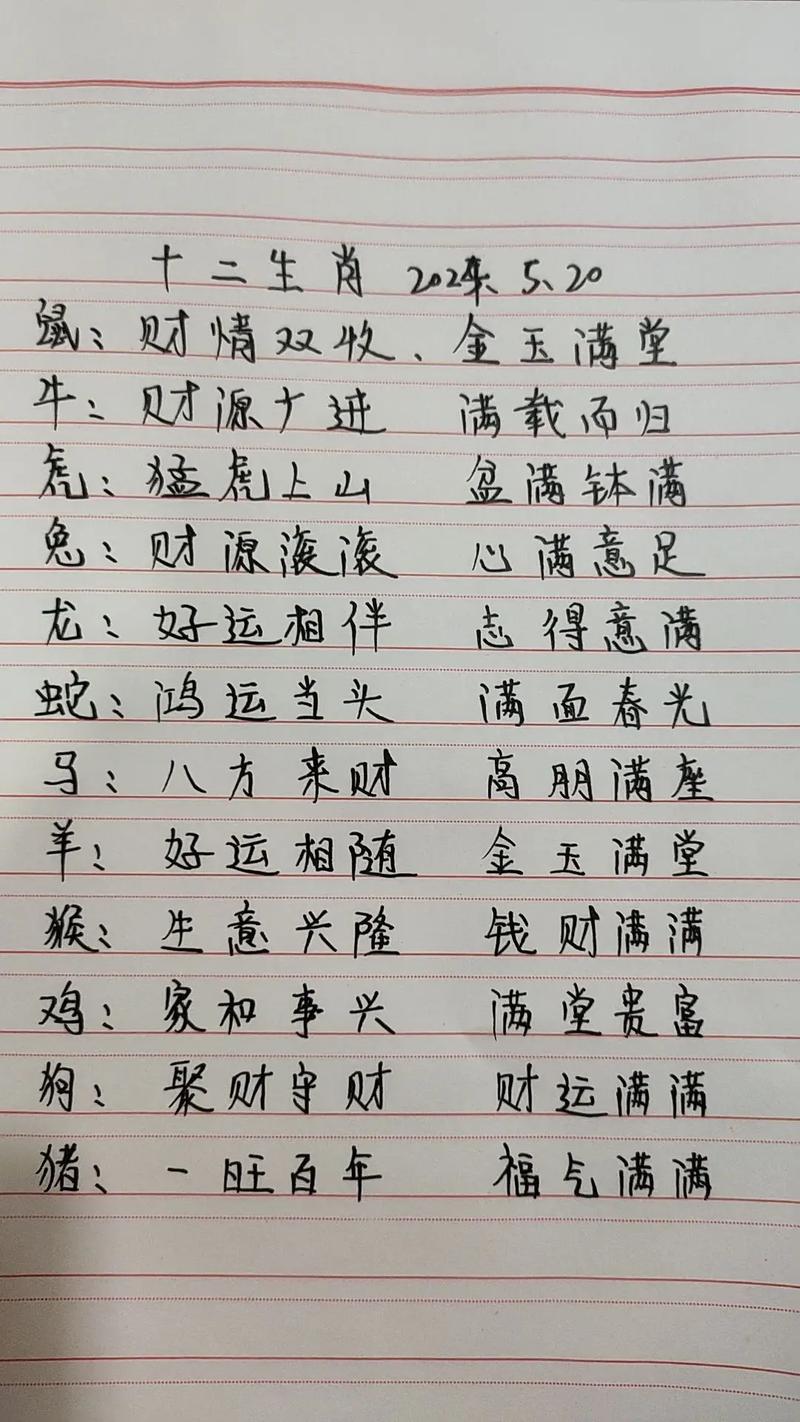 十二生肖 2024.5.20
鼠：财情双收、金玉满堂
牛：财源广进 满载而归
虎：猛虎上山 盆满钵满
兔：财源滚滚 心满意足
龙：好运相伴 志得意满
蛇：鸿运当头 满面春光
马：八方来财 高朋满座
羊：好运相随 金玉满堂
猴：生意兴隆 钱财满满
鸡：家和事兴 满堂贵富
狗：聚财守财 财运满满
猪：一旺百年 福气满满